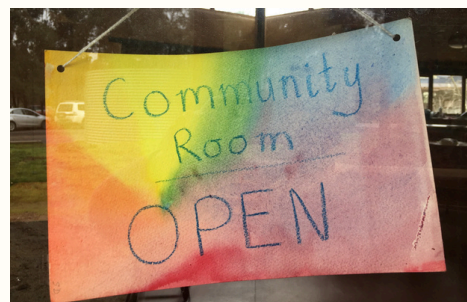 Community
Room
OPEN